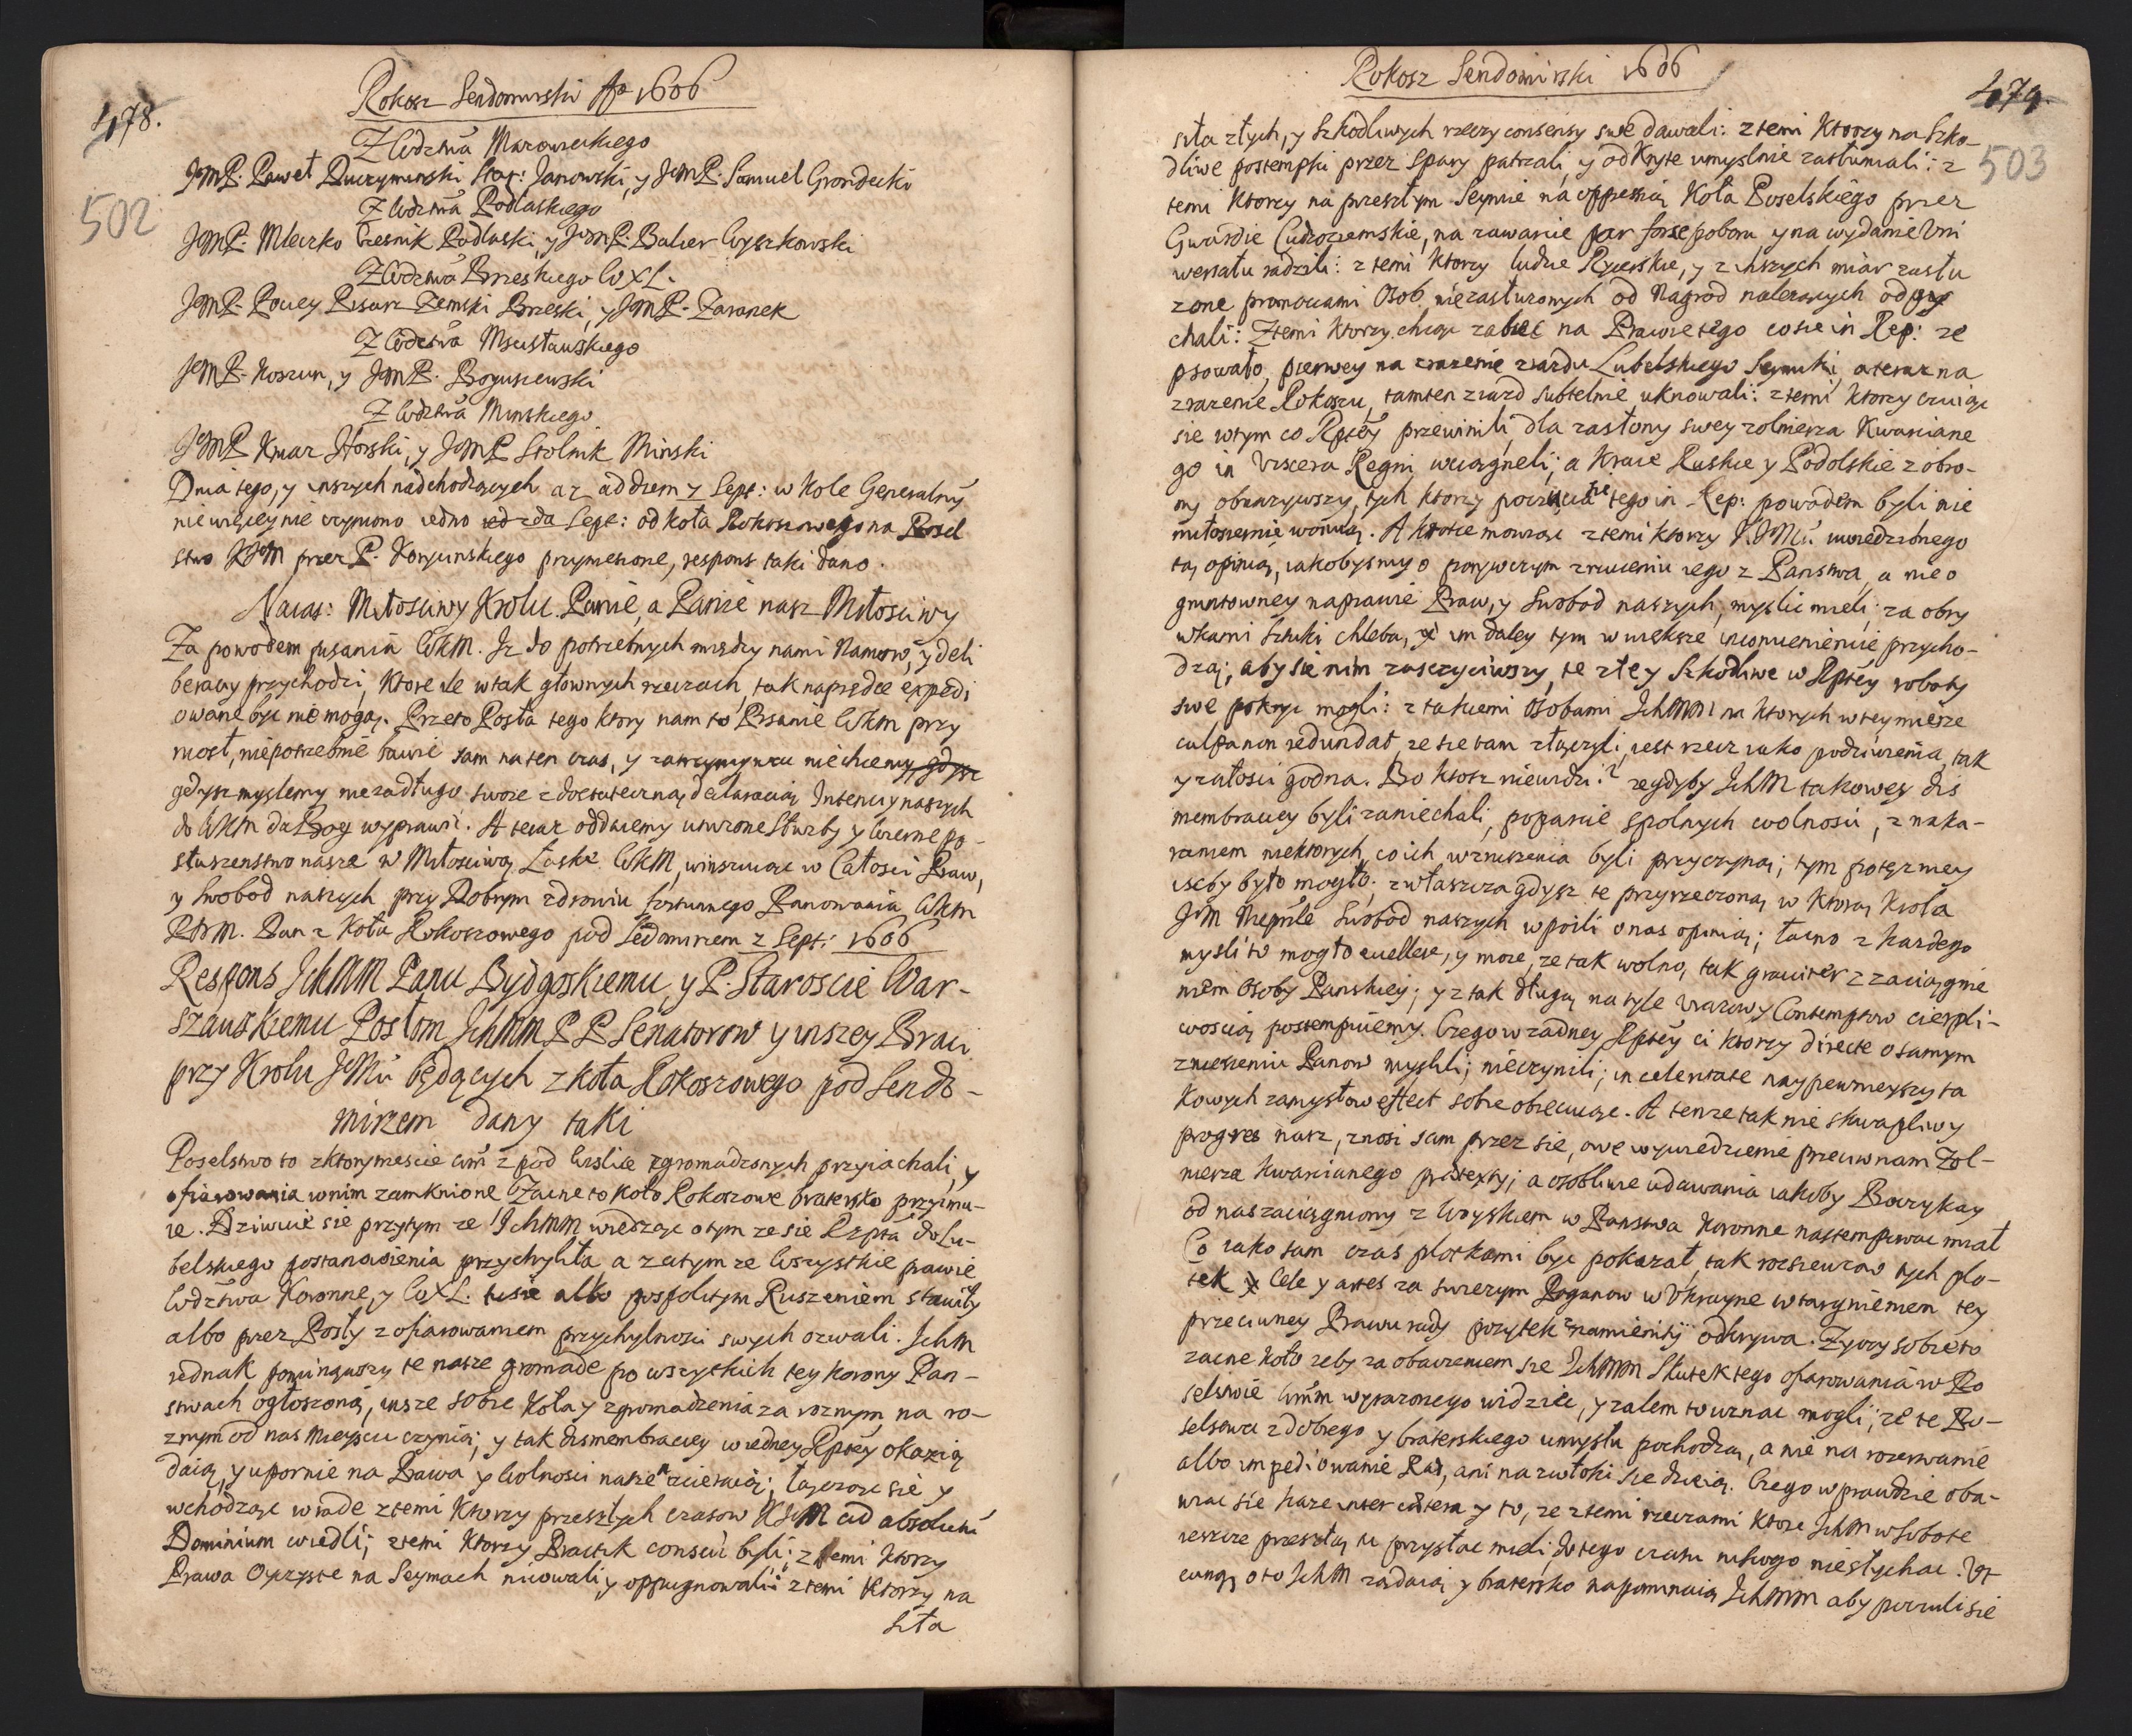 Rokosz Sendomirski Ao 1606
478.
502
Z Wdztwa Mazowieckiego
JmP. Paweł Duczyminski Star: Janowski, y JmP. Samuel Grondecki
Z Wdztwa Podlaskiego
JmP. Mleczko Czesnik Podlaski, y JmP. Balcer Wyszkowski
Z Wdztwa Brzeskiego WXL.
JmP. Pociey Pisarz Zemski Brzeski, y JmP. Zaranek
Z Wdztwa Mscisławskiego
JmP. Koszun, y JmP. Boguszewski
Z Wdztwa Minskiego
JmP Kniaz Horski, y JmP Stolnik Minski
Dnia tego, y inszych nadchodzących az ad diem 7 Sept: w Kole Generalny
nie więcey nie czyniono iedno Sept: od Koła Rokoszowego na Posel
stwo KJM przez P. Korycinskiego przyniesione, respons taki dano.
Naias: Miłosciwy Krolu Panie, a Panie nasz Miłosciwy
Za powodem pisania WKM. Iz do potrzebnych między nami Namow, y deli
beracyy przychodzi, Ktore ze w tak głownych rzeczach, tak naprędce expedi
owane byc nie mogą. Przeto Posła tego ktory nam to Pisanie WKM przy
niosł, niepotrzebnie bawic sam na ten czas, y zatrzymywac nie chcemy, gdysz
gdysz myslemy niezadługo swoie z dostateczną declaracią Intenciy naszych
do WKM da Bog wyprawic. A teraz oddaiemy unizone Słuzby y wierne po-
słuszenstwo nasze w Miłosciwą Łaskę WKM, winszuiąc w Całosci Praw,
y Swobod naszych przy Dobrym zdrowiu fortunnego Panowania WKM
PNM. Dan z Koła Rokoszowego pod Sędomirzem 2 Sept: 1606
Respons IchMM Panu Bydgoskiemu, y P. Staroscie War-
szawskiemu Posłom IchMM PP Senatorow y inszey Braci
przy Krolu JeMci będących z koła Rokoszowego pod Sendo-
mirzem dany taki
Poselstwo to z ktorymescie Wm z pod Wislice zgromadzonych przyiachali, y
ofiarowania w nim zamknione Zacne to Koło Rokoszowe bratersko przyimu-
ie. Dziwuie się przytym ze IchMM wiedząc o tym ze sie Rzpta do Lu-
belskiego postanowienia przychyliła a zatym ze Wszystkie prawie
Wdztwa Koronne, y WXL. tu sie albo pospolitym Ruszeniem stawiły
albo przez Posły z ofiarowaniem przychylnosci swych ozwali. Ichm
iednak pominąwszy te nasze gromade po wszytkich tey Korony Pan-
stwach ogłoszoną, insze sobie Koła y zgromadzenia za roznym na ro-
znym od nas Mieyscu czynią, y tak dismembraciey w iedney Rptey okazią
daią, y upornie na Prawa y Wolnosci nasze nacieraią; łączące się y
wchodząc w rade z temi Ktorzy przeszłych czasow KJM ad absolutu
Dominium wiedli; z temi Ktorzy Practik conscii byli; z temi Ktorzy
Prawa Oyczyste na Seymach nicowali, y oppugnowali: z temi Ktorzy na
Siła
Rokosz Sendomirski 1606
479.
503
siła złych, y Szkodliwych rzeczy consensy swe dawali: z temi Ktorzy na Szko-
dliwe postempki przez Spary patrzali, y odkryte umyslnie zatłumiali: z
temi Ktorzy na przeszłym Seymie na oppressią Koła Poselskiego przez
Gwardie Cudzoziemskie, na zawarcie par force poboru y na wydanie Vni
wersału radzili: z temi Ktorzy ludzie Rycerskie, y z inszych miar zasłu
zone promociami Osob niezasłuzonych od Nagrod nalezących odpy
chali: Z temi Ktorzy chcąc zabiec na Prawie tego co sie in Rep: ze
psowało, pierwey na zrazenie ziazdu Lubelskiego Seymiki, a teraz na
zrazenie Rokoszu, tamten ziazd subtelnie uknowali: z temi Ktorzy czuiąc
sie w tym co Rptey przewinili, dla zasłony swey zolnierza Kwarciane
go in Viscera Regni wciągneli; a Kraie Ruskie y Podolskie z obro-
ny obnazywszy, tych ktorzy poczucia się tego in Rep: powodem byli nie
miłosiernie woiuią. A krotce mowiąc z temi ktorzy KJMci uwiedzionego
tą opinią, iakobysmy o porywczym zrzuceniu iego z Panstwa, a nie o
gruntowney naprawie Praw, y Swobod naszych, myslic mieli, za obry
wkami Sztuki chleba, im daley tym w większe inconvenientie przycho-
dzą; aby sie nim zaszczyciwszy, te złe y Szkodliwe w Rptey roboty
swe pokryc mogli: z takiemi Osobami IchMM na ktorych w tey mierze
culpa non redundat, ze sie tam złączyli, iest rzecz iako podziwienia, tak
y załosci godna. Bo ktosz niewidzi? ze gdyby IchM takowey dis
membraciey byli zaniechali, poparcie spolnych wolnosci, z naka-
raniem niektorych, co ich wzruszenia byli przyczyną; tym potęzniey
iscby było mogło; zwłaszcza gdysz te przyrzeczoną w Ktorą Krola
JeM Nieprzle Swobod naszych wpoili o nas opinią; łacno z kazdego
mysli to mogło euellere, y moze, ze tak wolno, tak graviter z zaciągnie
niem Osoby Panskiey; y z tak długą na tyle Urazow y Contemptow cierpli-
woscią postempuiemy. Czego w zadney Rptey ci ktorzy directe o samym
zniesieniu Panow myslili; nieczynili; in celeritate naypewnieyszy ta
kowych zamysłow effect sobie obiecuiąc. A tenze tak nie skwapliwy
progres nasz, znosi sam przez sie, owe wywiedzienie przeciw nam zol-
nierza kwarcianego pretexty; a osobliwe udawania iakoby Boczykay
od nas zaciągniony z Woyskiem w Panstwa Koronne nastempowac miał
Co iako sam czas plotkami byc pokazał, tak rozsiewcow tych plo-
tek Cele y artes za swiezym Poganow w Ukraynę wtargnieniem tey
przeciwney Prawu rady pozytek znamienity odkrywa. Zyczy sobie to
zacne koło zeby za obaczeniem sie IchMM skutek tego ofiarowania w Po
selstwie Wmm wyrazonego widziec, y zatem to uznac mogli; ze te Po-
selstwa z dobrego y braterskiego umysłu pochodzą, a nie na rozerwanie
albo impediowanie Rad, ani na zwłoki sie dzieią. Czego w prawdzie oba-
wiac się kaze inter cetera y to, ze z temi rzeczami Ktore IchM w Sobote
ieszcze przeszłą tu przysłac mieli, do tego czasu nikogo niesłychac. Vt
cunq; o to IchM ządaią y bratersko napominaią IchMM aby poczuli sie